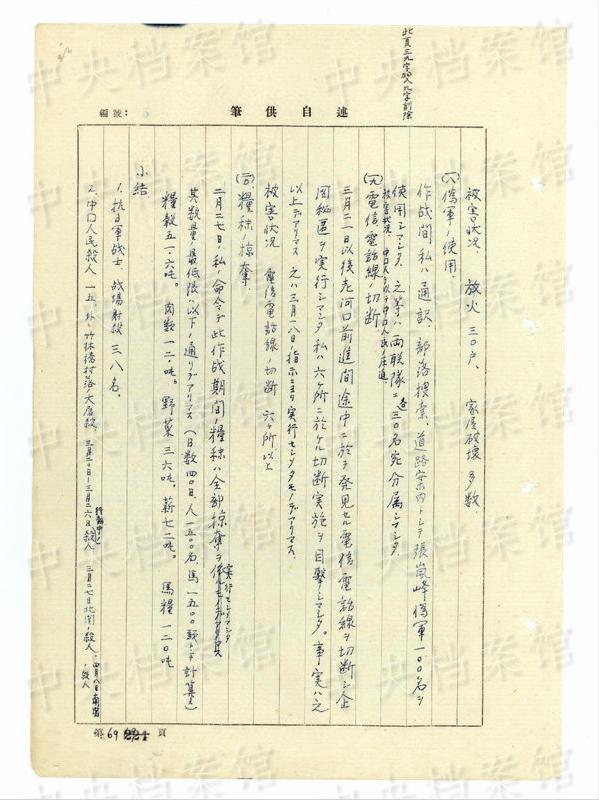 此頁三九字插入九字削除
編號：
筆供自述
被害状况、放火 三〇户、家屋破壊 多数
(八)偽軍ノ使用、
作战間私ハ通訳、部落捜索、道路案内トシテ張嵐峰偽軍一〇〇名ヲ
使用シマシタ、之等ハ両联隊ニ各三〇名宛分属シマシタ、
(九)電信電話線ノ切断
三月二一日以後老河口前進間途中ニ於テ発見セル電信電話線ヲ切断シ企
图秘匿ヲ実行シマシタ 私ハ六ケ所ニ於ケル切断実施ヲ目撃シマシタ。事実ハ之
以上デアリマス 之ハ三月八日ノ指示ニヨリ実行セシメタモノデアリマス、
被害状况 電信電話線ノ切断 六ケ所以上
糧秣ノ掠奪、
二月二七日、私ノ命令デ此作战期間ノ糧秣ハ全部掠奪ヲ実行セシメマシタ
其数量ノ最低限以下ノ通リデアリマス(日数四〇日、人一五〇〇名、馬一五〇〇頭トシテ計算)
糧穀五一.六吨。肉類一二.〇吨。野菜三六吨。薪七二吨。馬糧一二〇吨
小結
1. 抗日軍战士、战場射殺 三八名、
2. 中国人民殺人 一五、外ニ竹林橋村落ノ大屠殺、三月二〇日—三月二六日行動中ノ殺人 三月二七日北関ノ殺人、四月八日
殺人
第 69 頁
中央档案馆